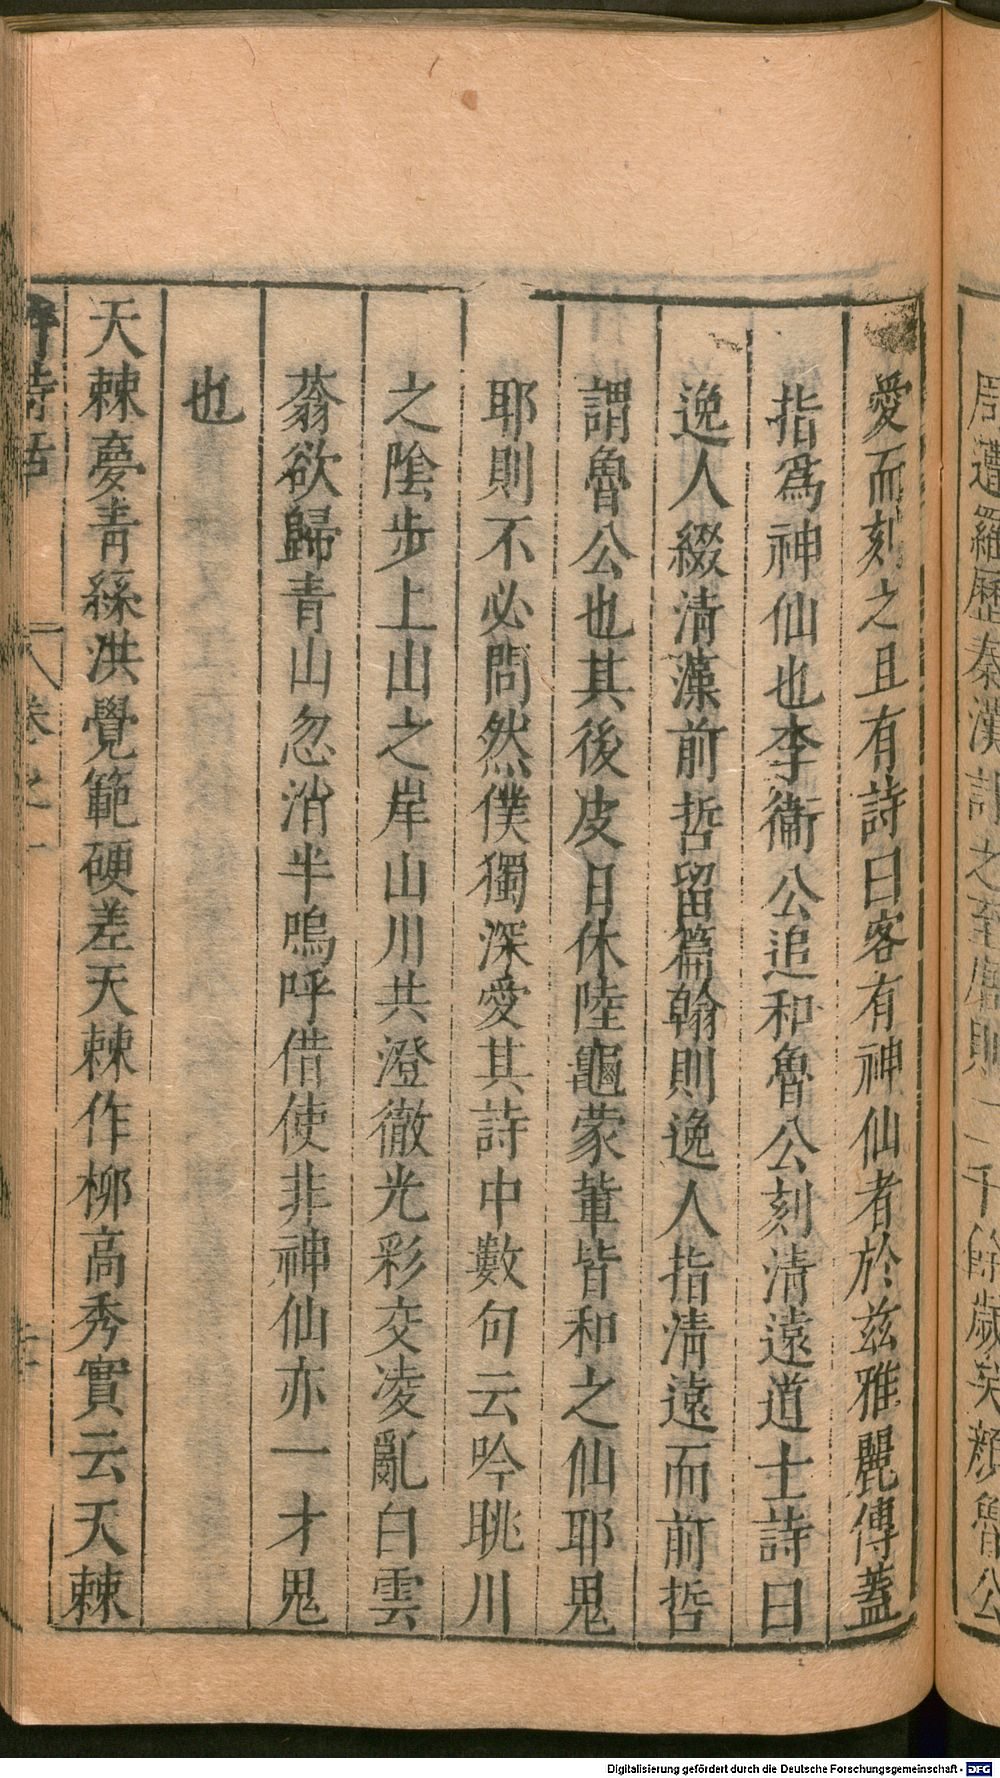 周遭羅歷秦漢計之至唐則一二千餘歲矣顏魯公
愛而刻之且有詩曰客有神仙者於兹雅麗傳蓋
指爲神仙也李衞公追和魯公刻清遠道士詩曰
逸人綴清藻前哲留篇翰則逸人指清遠而前哲
謂魯公也其後皮日休陸龜蒙軰皆和之仙耶鬼
耶則不必問然僕獨深愛其詩中數句云吟眺川
之陰步上山之岸山川共澄徹光彩交凌亂白雲
蓊欲歸青山忽消半嗚呼借使非神仙亦一才鬼
也
天棘夢青絲洪覺範硬差天棘作柳高秀實云天棘
詩話
卷之一
Digitalisierung gefördert durch die Deutsche Forschungsgemeinschaft - DFG